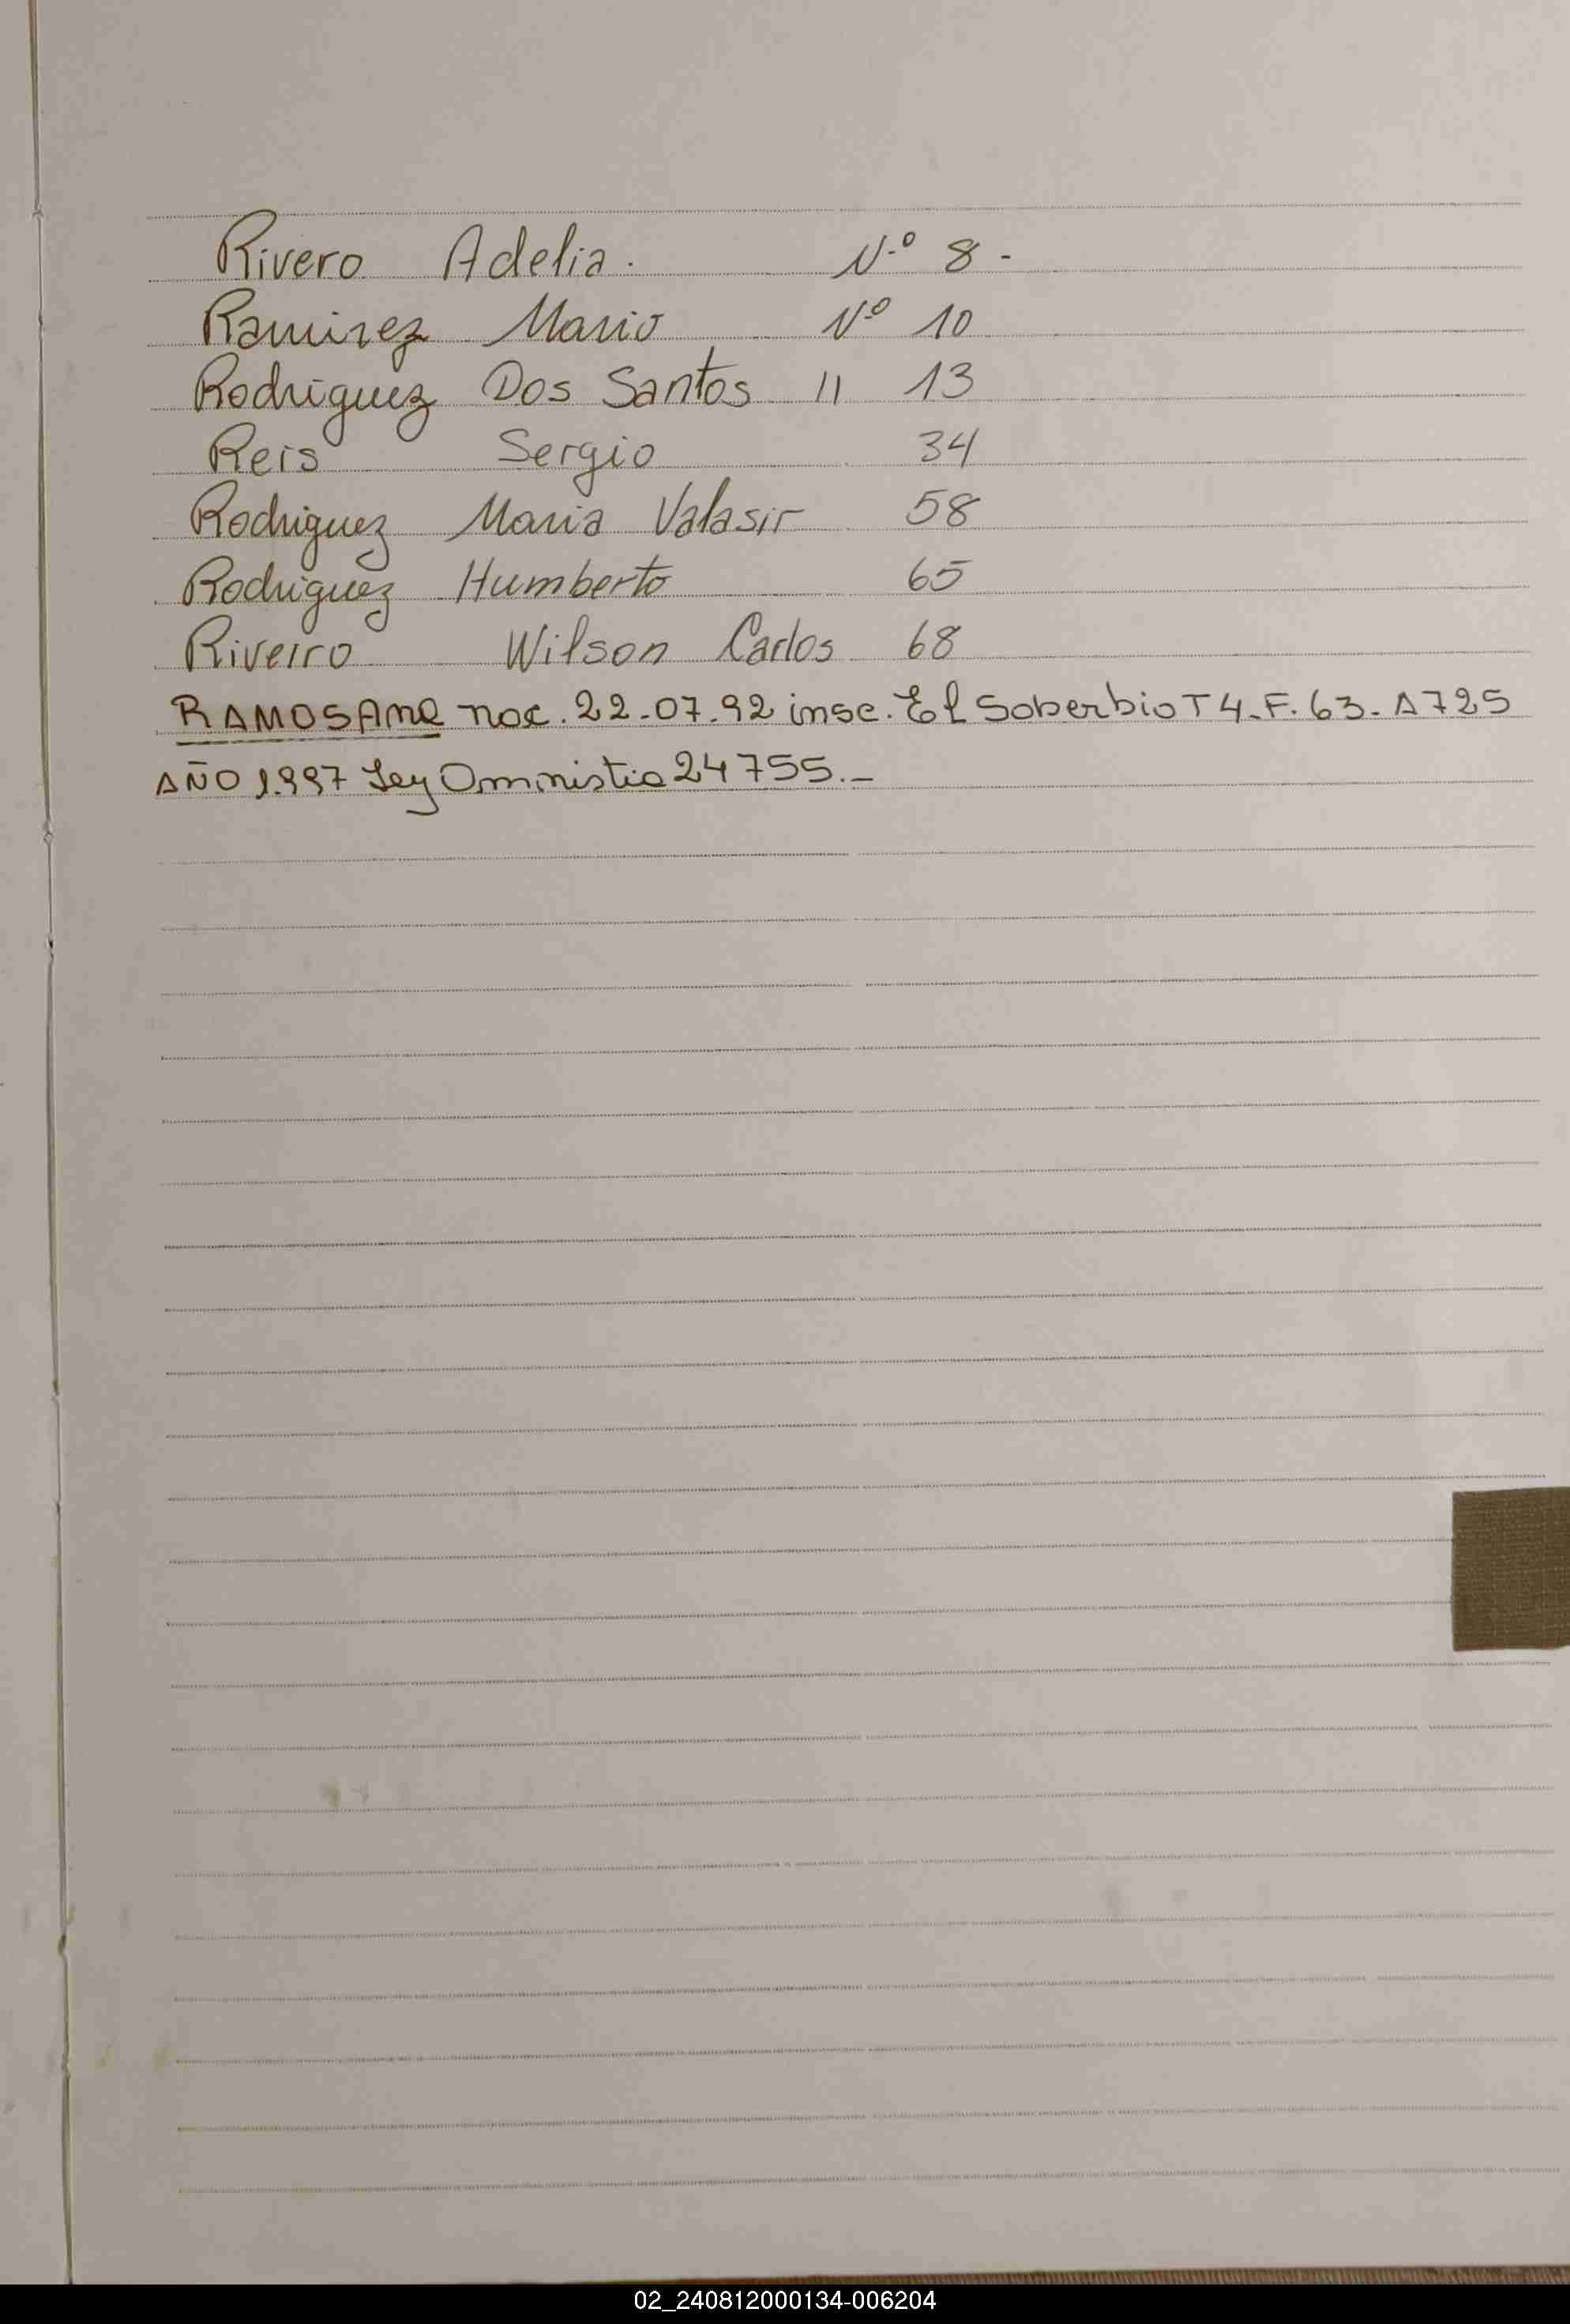 Rivero Adelia. N.º 8 -
Ramirez Mario Nº 10
Rodriguez Dos Santos 11 13
Reis Sergio 34
Rodriguez Maria Valasir 58
Rodriguez Humberto 65
Riveiro Wilson Carlos 68
RAMOS Ana nac. 22-07-92 insc. El Soberbio T 4-F. 63- A 725
AÑO 1.997 Ley Omnistia 24755.-
02_240812000134-006204